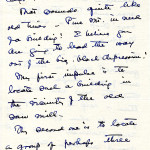 That sounds quite like
old times - Fine Mr. in and
go Building! I believe you
are going to lead the way
out of the big, black depression!
My first impulse is to
locate such a building in
the vicinity of the old
saw mill.
My second one is to locate
a group of perhaps three